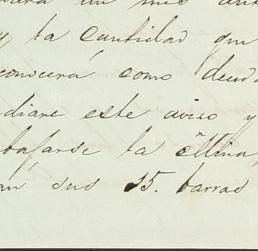 un mis
y, la cantidad que
conocerá como deud
diare este aviso y
bajarse la Mina,
an sus 15. barras